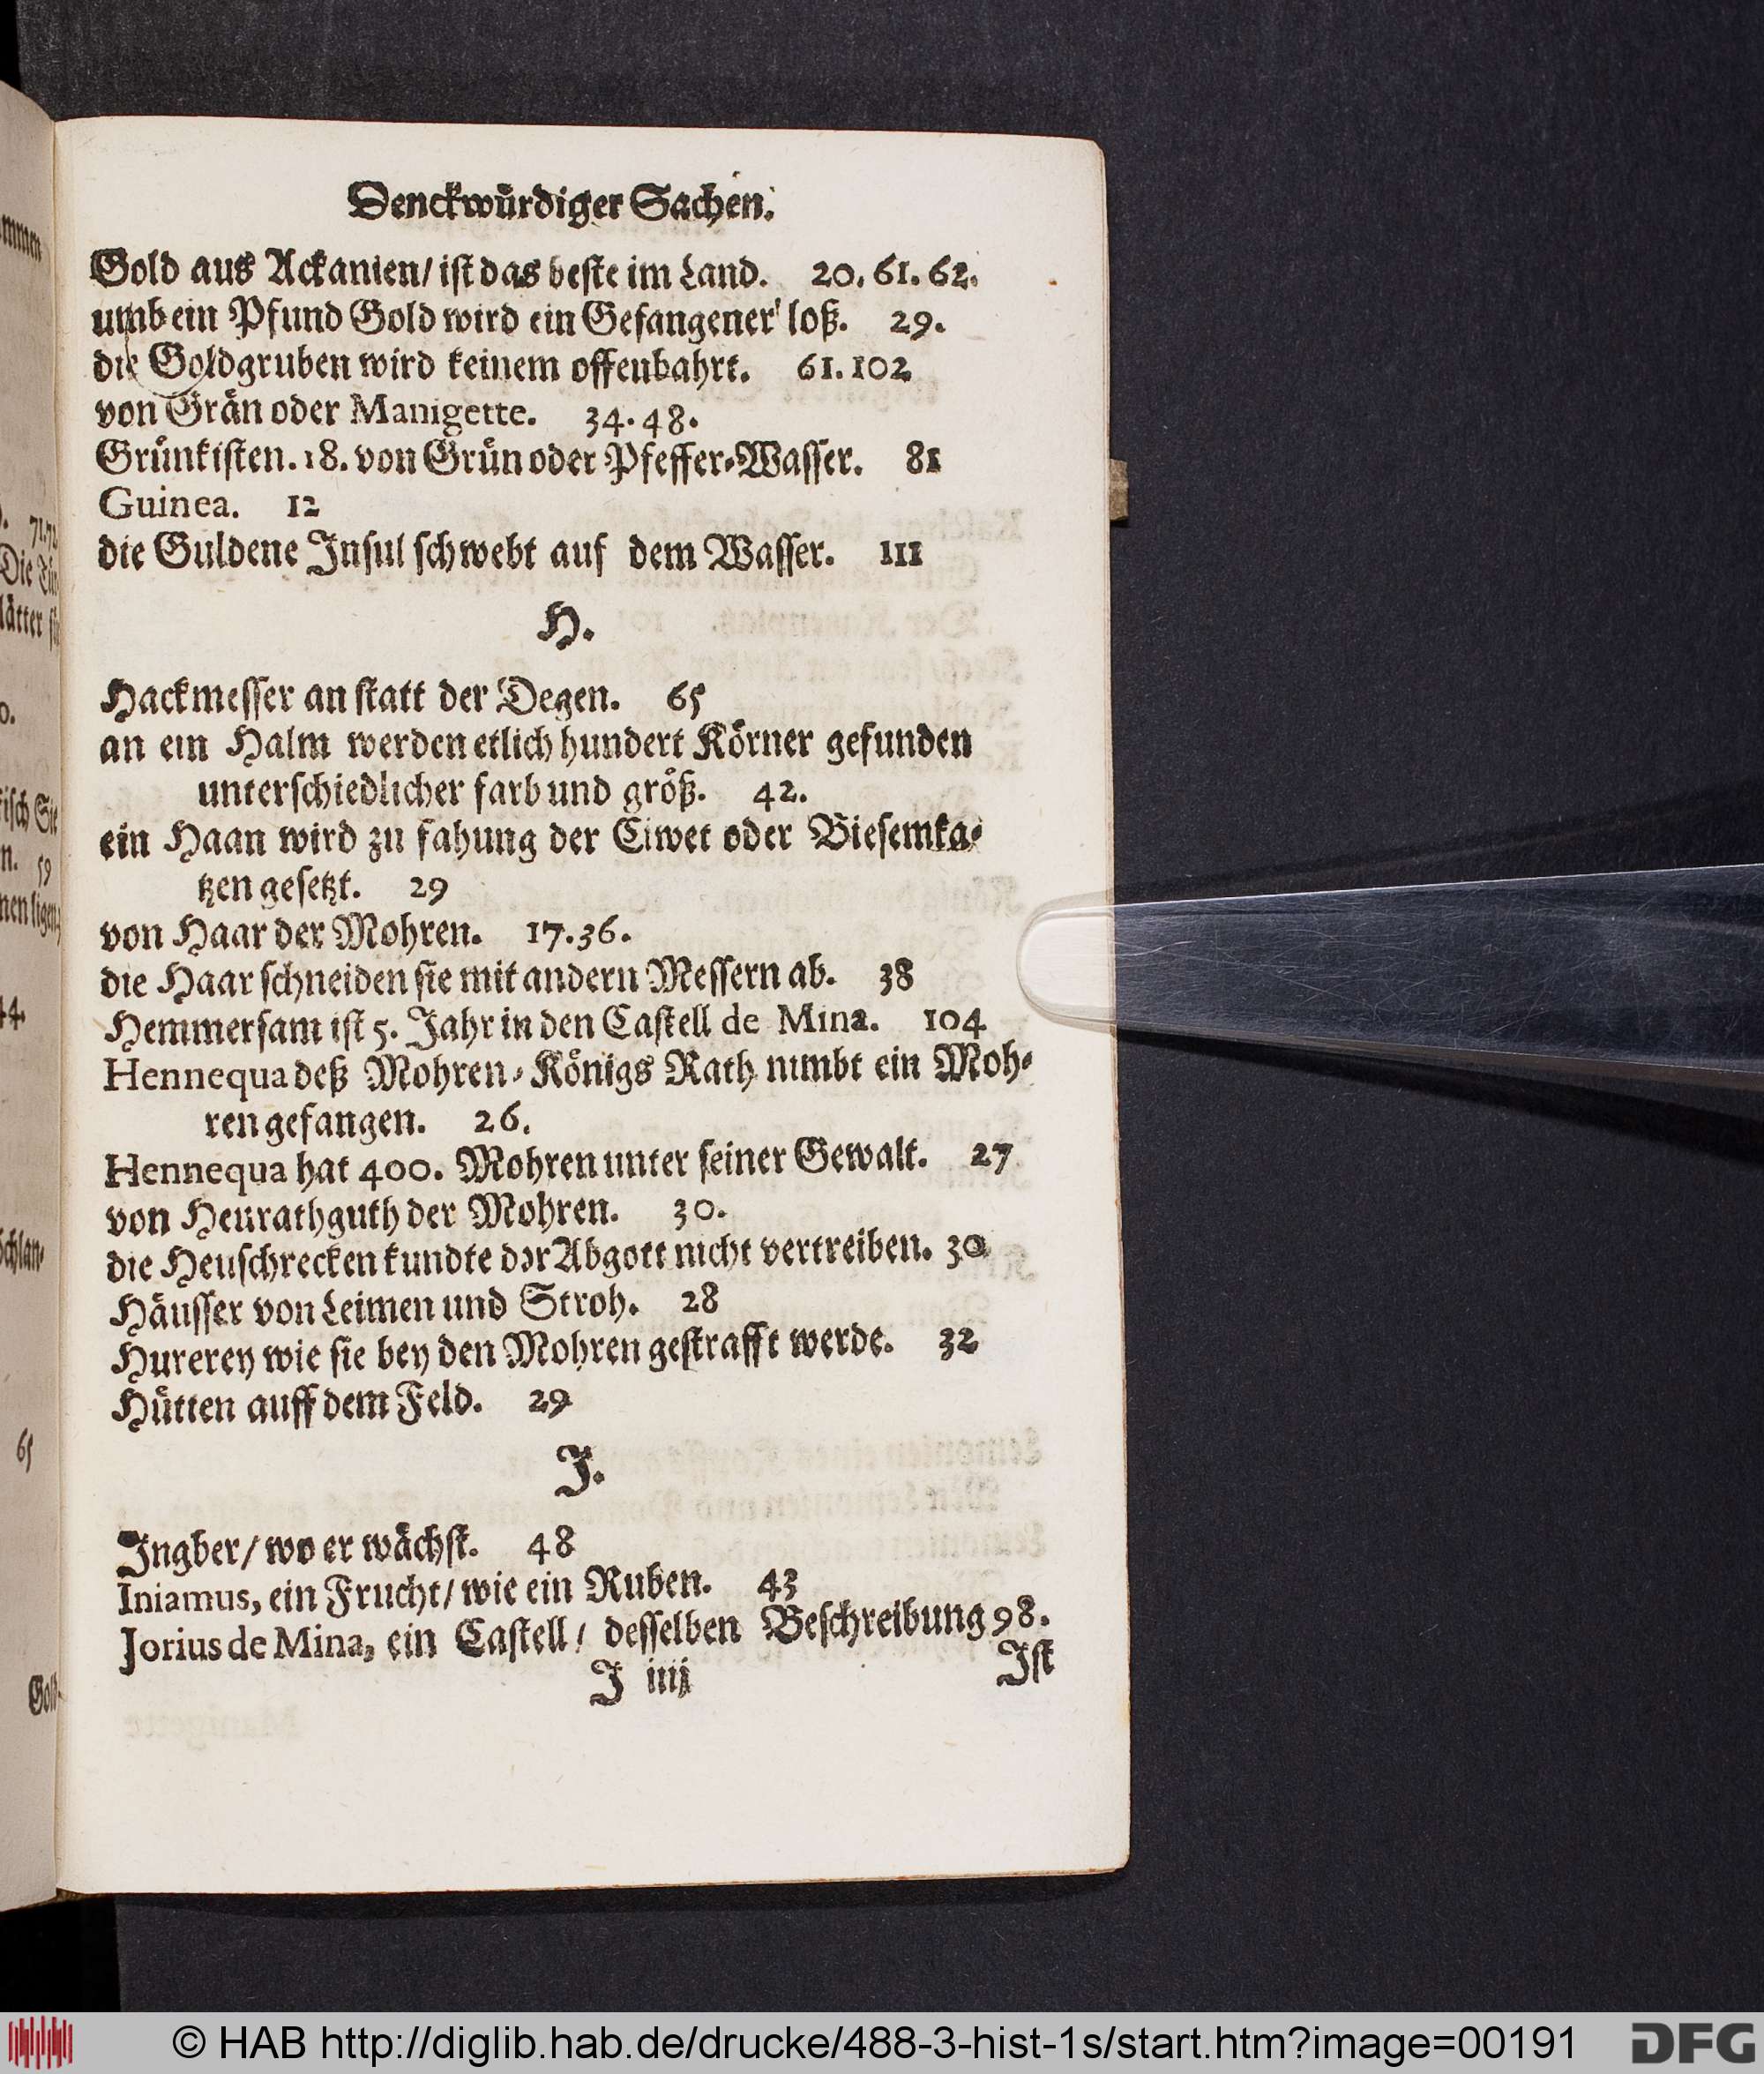 Denckwürdiger Sachen.
Gold aus Ackanien/ ist das beste im Land. 20. 61. 62.
umb ein Pfund Gold wird ein Gefangener loß. 29.
die Goldgruben wird keinem offenbahrt. 61. 102
von Grän oder Manigette. 34. 48.
Grünkisten. 18. von Grün oder Pfeffer-Wasser. 81
Guinea. 12
die Guldene Insul schwebt auf dem Wasser. 111
H.
Hackmesser an statt der Degen. 65
an ein Halm werden etlich hundert Körner gefunden
unterschiedlicher farb und größ. 42.
ein Haan wird zu fahung der Ciwet oder Biesemka-
tzen gesetzt. 29
von Haar der Mohren. 17. 36.
die Haar schneiden sie mit andern Messern ab. 38
Hemmersam ist 5. Jahr in den Castell de Mina. 104
Hennequa deß Mohren-Königs Rath nimbt ein Moh-
ren gefangen. 26.
Hennequa hat 400. Mohren unter seiner Gewalt. 27
von Heurathguth der Mohren. 30.
die Heuschrecken kundte der Abgott nicht vertreiben. 30
Häusser von Leimen und Stroh. 28
Hurerey wie sie bey den Mohren gestrafft werde. 32
Hütten auff dem Feld. 29
J.
Ingber/ wo er wächst. 48
Iniamus, ein Frucht/ wie ein Ruben. 43
Jorius de Mina, ein Castell/ desselben Beschreibung 98.
J iiij
Ist
© HAB http://diglib.hab.de/drucke/488-3-hist-1s/start.htm?image=00191
DFG